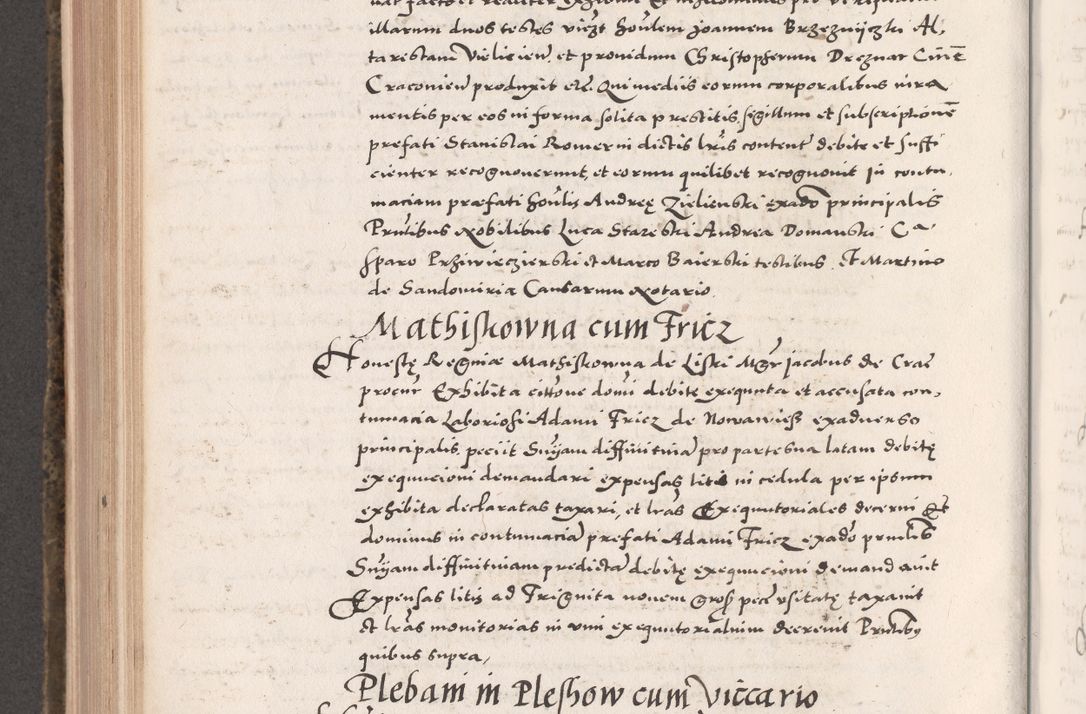 illarum duos testes viczt honlem Joannem Brzeznijczki Al,
tarestam Vielicien, et providum Christophorum Dreznar Civē
Cracovien produxit etc. Qui mediis eorum corporalibus iura
mentis per eos in forma solita prestitis, sigillum et subscriptionē
prefati Stanislai Romer in dictis lris content debite et suffi
cienter recognoverunt, et eorum quilibet recognovit In contu,
maciam præfati honlis Andreę Zielienski exado principalis
Pntibus Nobilibus Luca Starzeski Andrea Domanski Ca
sparo Prziwieczierski et Marco Baierski testibus Et Martino
de Sandomiria Causarum Notario
Mathiskowna cum Fricz
Honestę Regniæ Mathiskowna de Liski Mgr Jacobus de Crac
procur Exhibita cittone domi debite exequuta et accusata con,
tumacia Laboriosi Adami Fricz de Nowawiesz exadverso
principalis peciit Snijam diffinitiva pro parte sua latam debitę
exequucioni demandari expensas litis in cedula per ipsum
exhibita declaratas taxari, et lras Exequutoriales decerni Et
dominus in contumacia prefati Adami Fricz exado pntilis
Snijam diffinitivam predicta debitę exequucioni demandavit
Expensas litis ad Triginta novem gross pecc usitatę taxavit
et lras monitorias in vim exequutorialium decrevit Pntibus
quibus supra,
Plebani in Pleshow cum Viccario